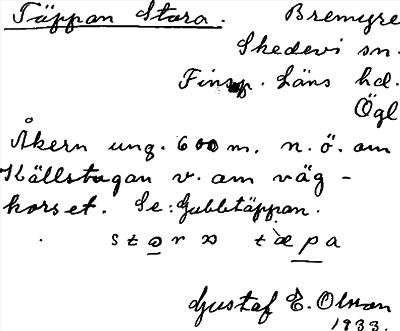 Täppan Stora. Bremyre
Skedevi sn.
Finsp. Läns hd.
Ögl
Åkern ung. 600 m. n. ö. om
Källstugan v. om väg-
korset. Se: Gubbtäppan.
stora tæpa
Gustaf E. Olsson
1933.